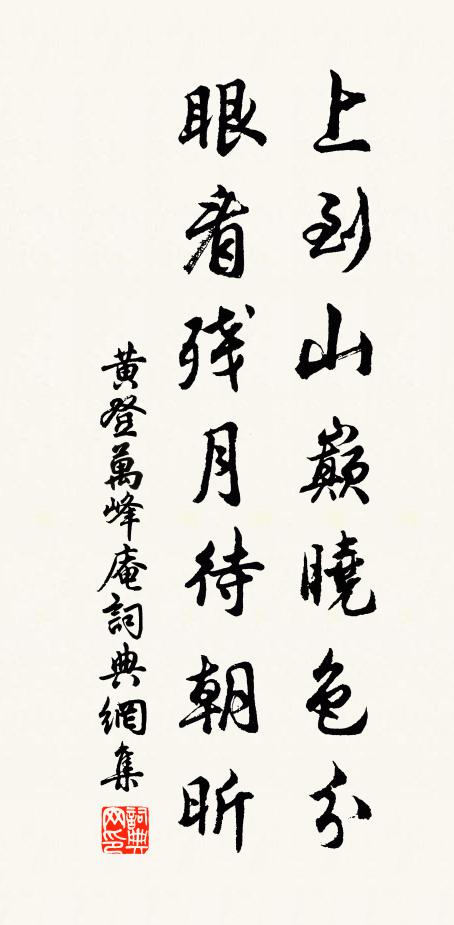 上到山巔曉色分
眼看残月待朝昕
黃登萬峰庵詞典網集
詞典網印